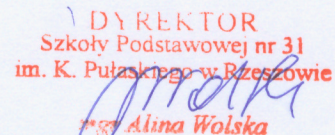 DYREKTOR
Szkoły Podstawowej nr 31
im. K. Pułaskiego w Rzeszowie
mgr Alina Wolska